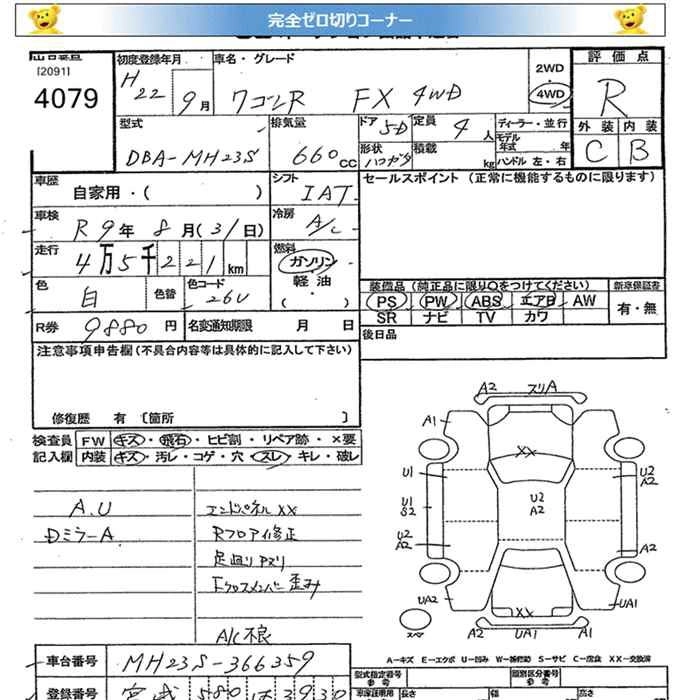 完全ゼロ切りコーナー
[2091]
4079
初度登録年月
H 22年 9月
車名・グレード
ワゴンR FX 4WD
2WD
4WD
評価点
R
外装 内装
C B
型式
DBA-MH23S
排気量
660cc
ドア 5D
形状 ハッチバ
定員 4人
積載 kg
ディーラー・並行
モデル年式 年
ハンドル 左・右
車歴
自家用・( )
シフト
IAT
セールスポイント (正常に機能するものに限ります)
車検
R9年 8月(31日)
冷房
A/C
走行
4万5千221km
燃料
ガソリン
軽油
( )
色
白
色替
色コード
26U
装備品(純正品に限り○をつけてください)
新車保証書
PS PW ABS エアB AW
SR ナビ TV カワ
有・無
R券 9880円
名変通知期限 月 日
後日品
注意事項申告欄(不具合内容等は具体的に記入して下さい)
修復歴 有 [箇所 ]
検査員 FW キズ・飛石・ヒビ割・リペア跡・×要
記入欄 内装 キズ・汚レ・コゲ・穴・スレ・キレ・破レ
A.U
Dミラー A
エンドパネル XX
Rフロア修正
足廻りサビリ
Fクロスメンバー歪み
A/C不良
A2 スリA
A1
XX
U1
U2 A2
U1 S2
U2 A2
U2 A2
A2
UA2
XX
UA1
スペア
A2 UA1 A1
A-キズ E-エクボ U-凹み W-補修跡 S-サビ C-腐食 XX-交換済
車台番号 MH23S-366359
登録番号 宮城 580 3930
型式指定番号
類別区分番号
長さ 幅 高さ